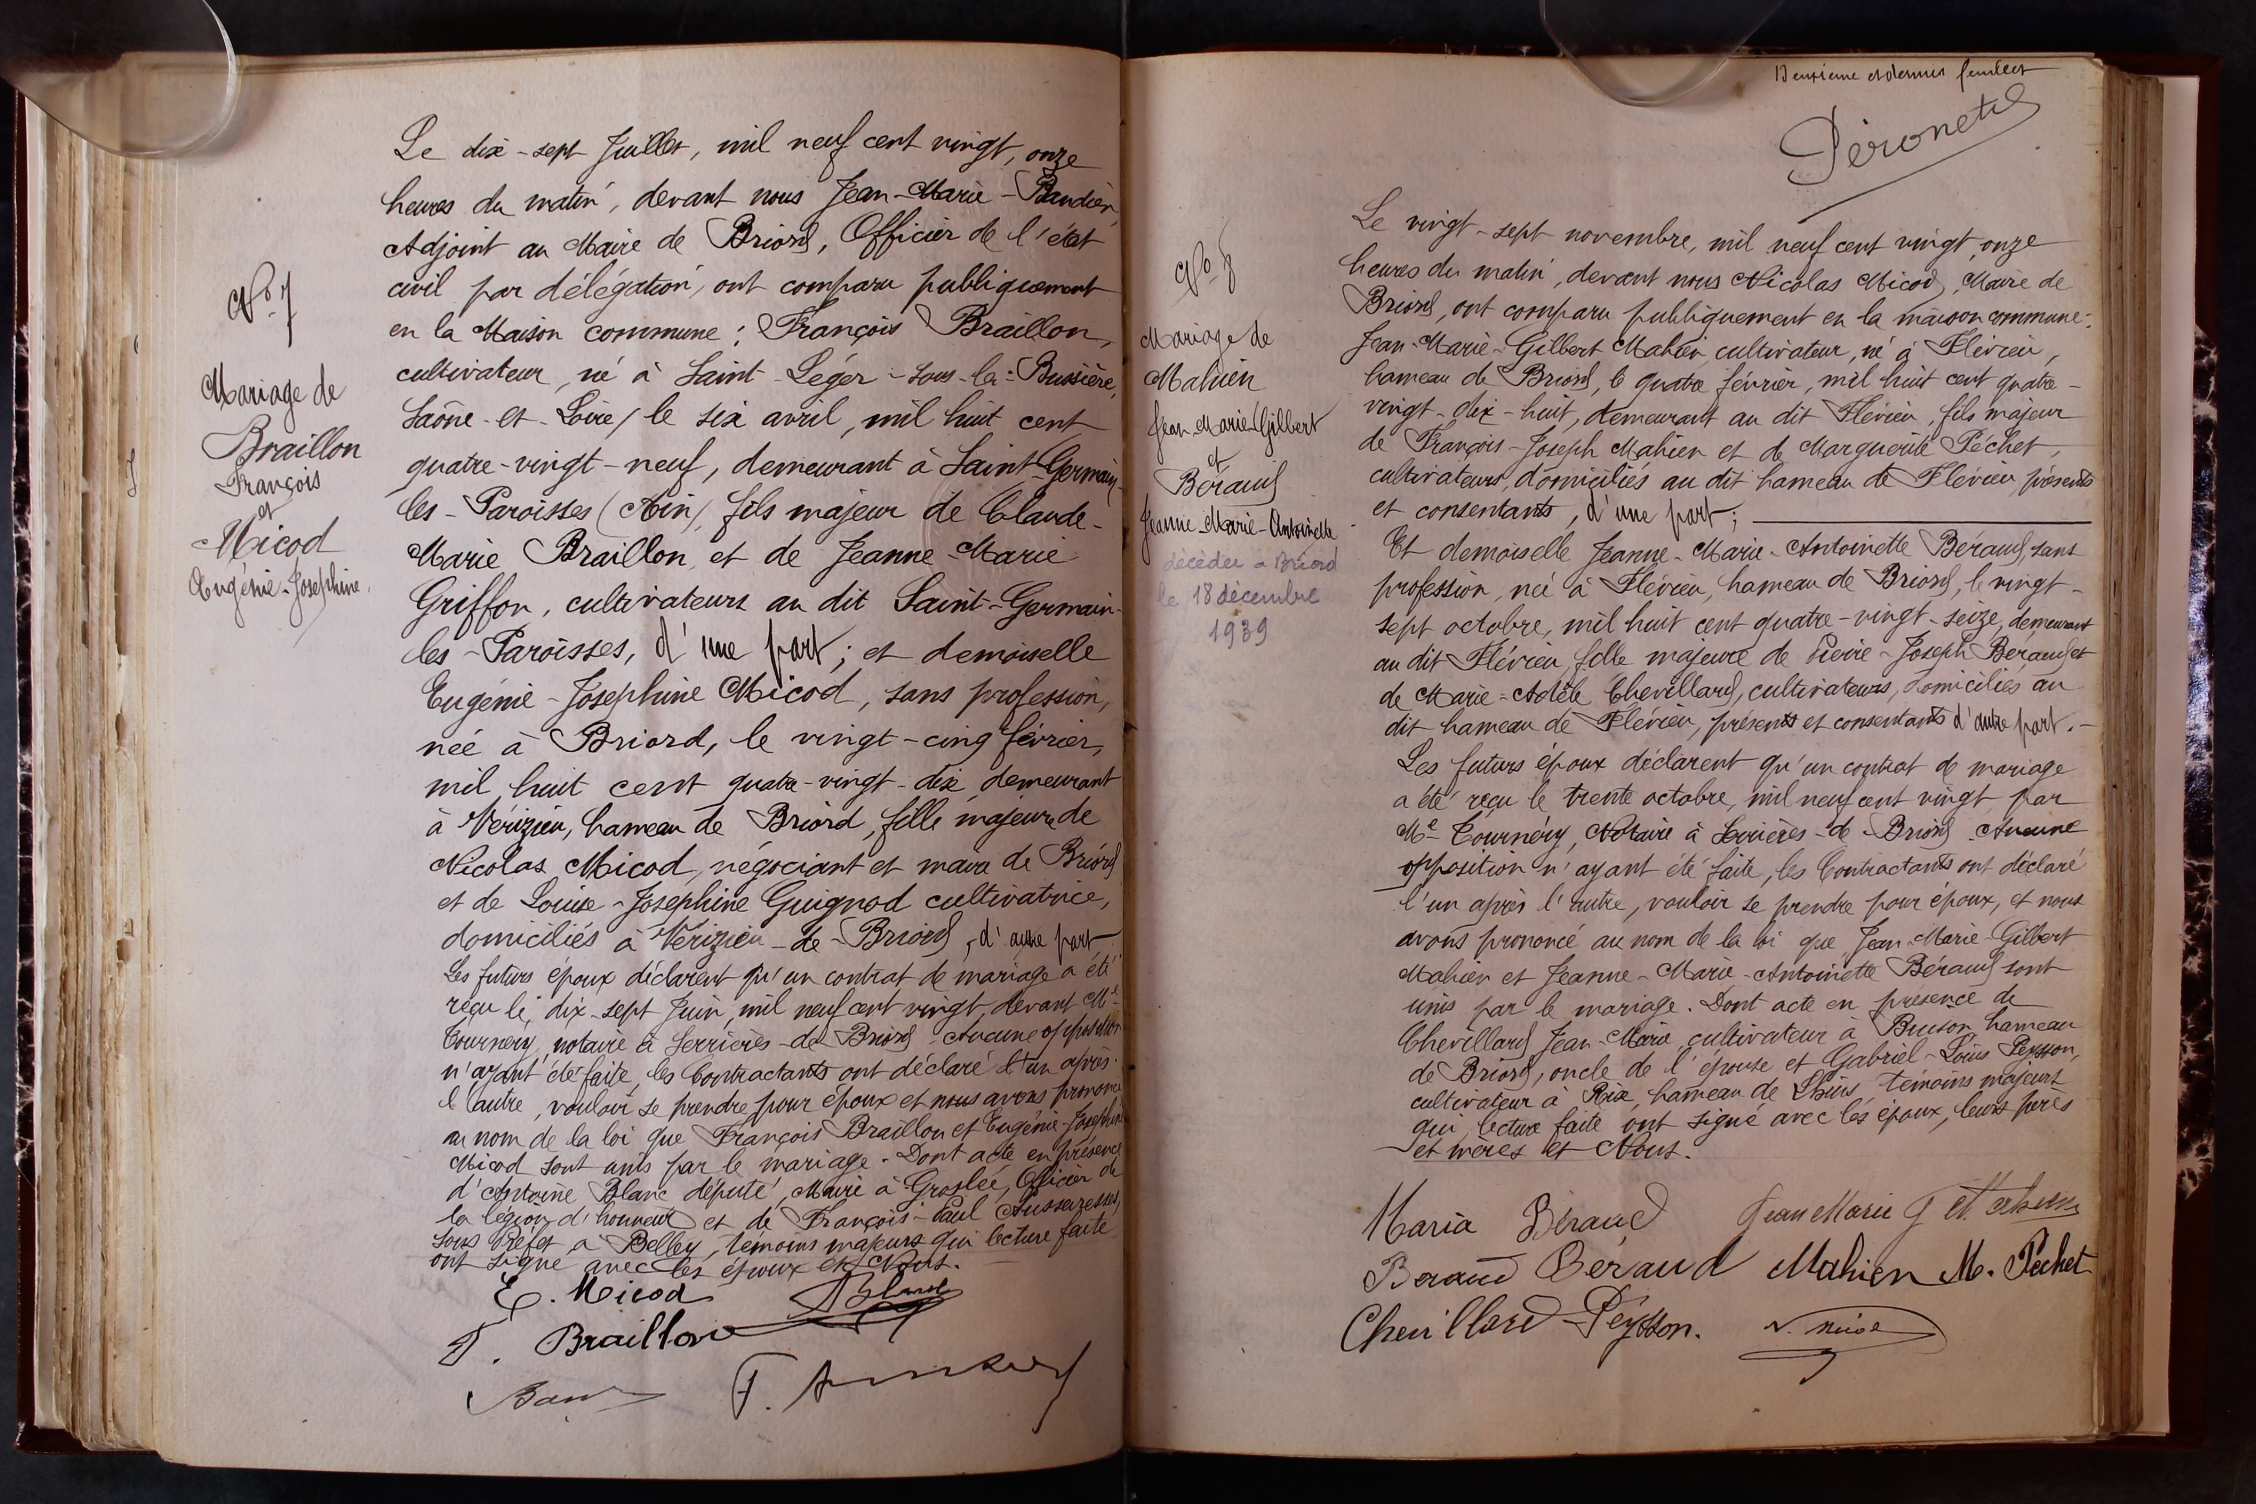 No 7
Mariage de
Braillon
François
et
Micod
Eugénie-Josephine.
Le dix-sept Juillet, mil neuf cent vingt, onze
heures du matin, devant nous Jean-Marie-
Adjoint au Maire de Briord, Officier de l'état
civil par délégation, ont comparu publiquement
en la Maison commune : François Braillon,
cultivateur, né à Saint-Léger-sous-la-Bussière,
Saône-et-Loire, le six avril, mil huit cent
quatre-vingt-neuf, demeurant à Saint-Germain-
les-Paroisses (Ain), fils majeur de Claude-
Marie Braillon, et de Jeanne-Marie
Griffon, cultivateurs au dit Saint-Germain-
les-Paroisses, d'une part ; et demoiselle
Eugénie-Josephine Micod, sans profession,
née à Briord, le vingt-cinq février,
mil huit cent quatre-vingt-dix, demeurant
à Vérizieu, hameau de Briord, fille majeure de
Nicolas Micod, négociant et maire de Briord
et de Louise-Josephine Guignod cultivatrice,
domiciliés à Vérizieu-de-Briord, d'autre part.
Les futurs époux déclarent qu'un contrat de mariage a été
reçu le, dix-sept Juin, mil neuf cent vingt, devant Me
Tournery, notaire à Serrières-de-Briord. Aucune opposition
n'ayant été faite, les Contractants ont déclaré l'un après
l'autre, vouloir se prendre pour époux et nous avons prononcé
au nom de la loi que François Braillon et Eugénie-Josephine
Micod sont unis par le mariage. Dont acte en présence
d'Antoine Blanc député, Maire à Groslée, Officier de
la légion d'honneur et de François-Paul
Sous Préfet à Belley, témoins majeurs qui lecture faite
ont signé avec les époux et Nous.
E. Micod
Blanc
F. Braillon
Deuxième et dernier feuillet
No 8
Mariage de
Mahien
Jean-Marie-Gilbert
et
Béraud
Jeanne-Marie-Antoinette
décédée à Briord
le 18 décembre
1939
Le vingt-sept novembre, mil neuf cent vingt, onze
heures du matin, devant nous Nicolas Micod, Maire de
Briord, ont comparu publiquement en la maison commune :
Jean-Marie-Gilbert Mahien, cultivateur, né à Flévieu,
hameau de Briord, le quatre février, mil huit cent quatre-
vingt-dix-huit, demeurant au dit Flévieu, fils majeur
de François-Joseph Mahien et de Marguerite Péchet,
cultivateurs, domiciliés au dit hameau de Flévieu, présents
et consentants, d'une part ;
Et demoiselle Jeanne-Marie-Antoinette Béraud, sans
profession, née à Flévieu, hameau de Briord, le vingt-
sept octobre, mil huit cent quatre-vingt-seize, demeurant
au dit Flévieu, fille majeure de Pierre-Joseph Béraud et
de Marie-Adèle Chevillard, cultivateurs, domiciliés au
dit hameau de Flévieu, présents et consentants d'autre part.-
Les futurs époux déclarent qu'un contrat de mariage
a été reçu le trente octobre, mil neuf cent vingt par
Me Tournery, Notaire à Serrières-de-Briord. Aucune
opposition n'ayant été faite, les Contractants ont déclaré
l'un après l'autre, vouloir se prendre pour époux, et nous
avons prononcé au nom de la loi que Jean-Marie-Gilbert
Mahien et Jeanne-Marie-Antoinette Béraud sont
unis par le mariage. Dont acte en présence de
Chevillard Jean-Marie, cultivateur à Buison hameau
de Briord, oncle de l'épouse et Gabriel-Louis Peysson,
cultivateur à Rix, hameau de Lhuis témoins majeurs
qui, lecture faite ont signé avec les époux, leurs pères
et mères et Nous.
Maria Béraud
Jean Marie G Mahien
Beraud Béraud Mahien M. Péchet
Chevillard Peysson. N. Micod